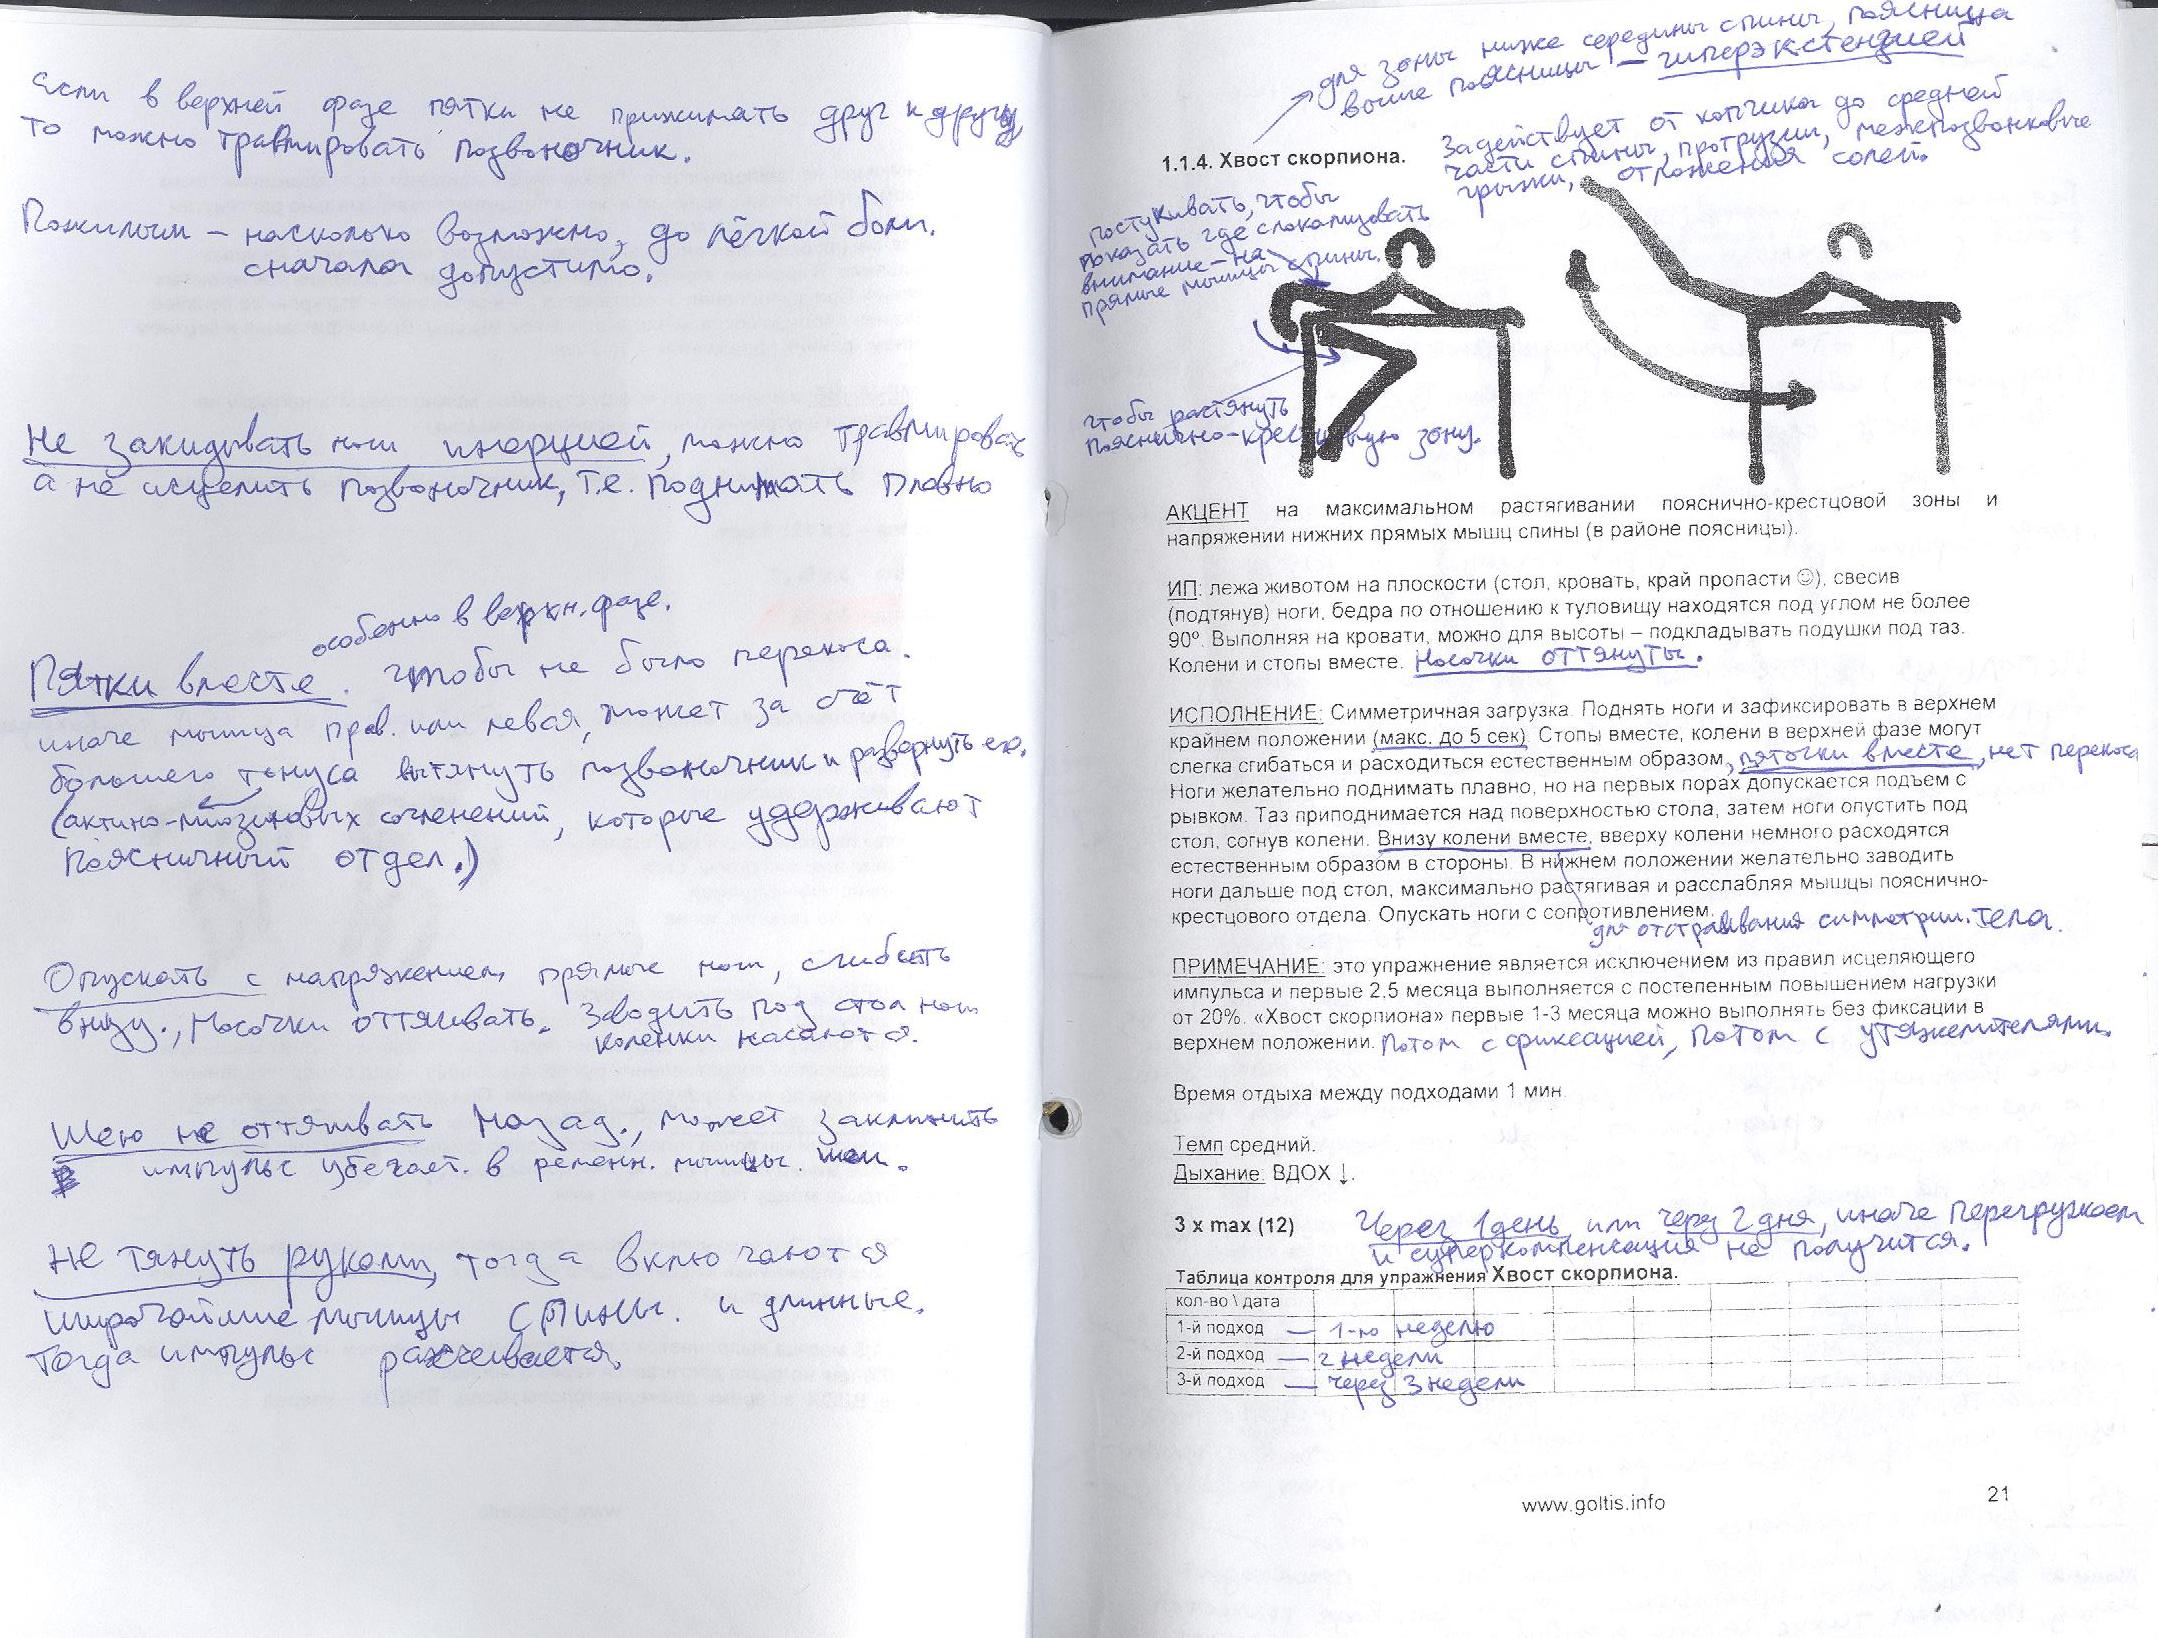 Если в верхней фазе пятки не прижимать друг к другу
то можно травмировать позвоночник.
Пожилым – насколько возможно, до лёгкой боли.
сначала допустимо.
Не закидывать ноги инерцией, можно травмировать
а не исцелить позвоночник, т.е. поднимать плавно
особенно в верхн. фазе.
Пятки вместе. Чтобы не было перекоса.
иначе мышца прав. или левая, может за счёт
большего тонуса вытянуть позвоночник и развернуть его.
(актино-миозиновых сочленений, которые удерживают
поясничный отдел.)
Опускать с напряжением прямые ноги, сгибать
внизу., Носочки оттягивать. Заводить под стол ноги
коленки касаются.
Шею не оттягивать назад., может заклинить
импульс убегает. в ременн. мышцы. шеи.
Не тянуть руками, тогда включаются
широчайшие мышцы спины. и длинные.
Тогда импульс рассеивается.
для зоны ниже середины спины, поясница
выше поясницы – гиперэкстензией
Задействует от копчика до средней
части спины, протрузии, межпозвонковые
грыжи, отложения солей.
1.1.4. Хвост скорпиона.
постукивать, чтобы
показать где слокализовать
внимание – на
прямые мышцы спины.
чтобы растянуть
пояснично-крестцовую зону.
АКЦЕНТ на максимальном растягивании пояснично-крестцовой зоны и
напряжении нижних прямых мышц спины (в районе поясницы).
ИП: лежа животом на плоскости (стол, кровать, край пропасти ☺), свесив
(подтянув) ноги, бедра по отношению к туловищу находятся под углом не более
90º. Выполняя на кровати, можно для высоты – подкладывать подушки под таз.
Колени и стопы вместе. Носочки оттянуты.
ИСПОЛНЕНИЕ: Симметричная загрузка. Поднять ноги и зафиксировать в верхнем
крайнем положении (макс. до 5 сек). Стопы вместе, колени в верхней фазе могут
слегка сгибаться и расходиться естественным образом, пяточки вместе, нет перекоса
Ноги желательно поднимать плавно, но на первых порах допускается подъем с
рывком. Таз приподнимается над поверхностью стола, затем ноги опустить под
стол, согнув колени. Внизу колени вместе, вверху колени немного расходятся
естественным образом в стороны. В нижнем положении желательно заводить
ноги дальше под стол, максимально растягивая и расслабляя мышцы пояснично-
крестцового отдела. Опускать ноги с сопротивлением.
для отстраивания симметрии. тела.
ПРИМЕЧАНИЕ: это упражнение является исключением из правил исцеляющего
импульса и первые 2,5 месяца выполняется с постепенным повышением нагрузки
от 20%. «Хвост скорпиона» первые 1-3 месяца можно выполнять без фиксации в
верхнем положении. Потом с фиксацией, потом с утяжелителями.
Время отдыха между подходами 1 мин.
Темп средний.
Дыхание: ВДОХ ↓.
3 x max (12) Через 1 день или через 2 дня, иначе перегружаем
и суперкомпенсация не получится.
Таблица контроля для упражнения Хвост скорпиона.
кол-во \ дата
1-й подход – 1-ю неделю
2-й подход – 2 недели
3-й подход – через 3 недели
www.goltis.info 21